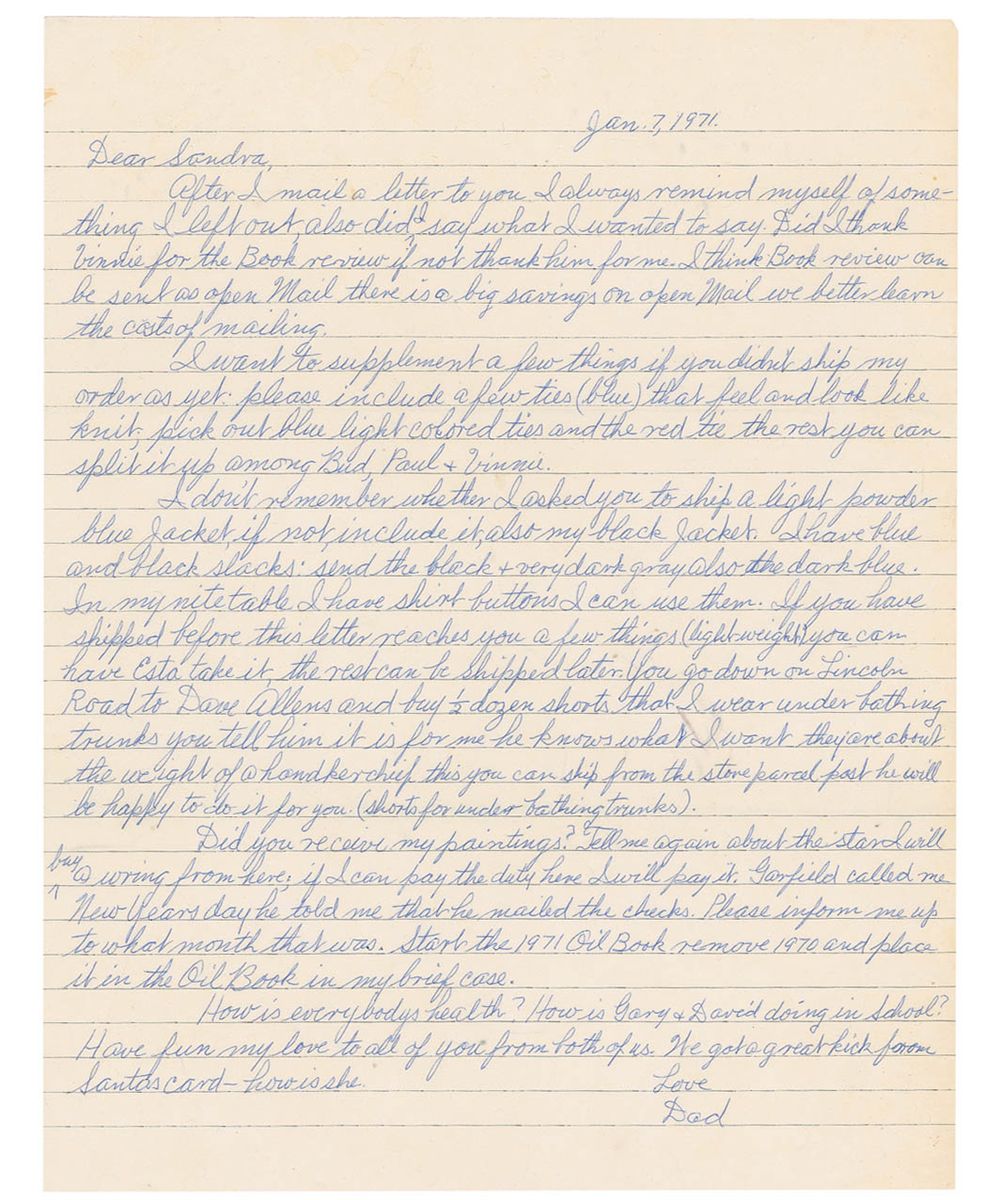 Jan. 7, 1971.
Dear Sandra,
After I mail a letter to you I always remind myself of some-
thing I left out, also did'd say what I wanted to say. Did I thank
Vinnie for the Book review? if not thank him for me. I think Book review can
be sent as open Mail there is a big savings on open Mail we better learn
the costs of mailing.
I want to supplement a few things if you didn't ship my
order as yet: please include a few ties (blue) that feel and look like
knit, pick out blue light colored ties and the red tie the rest you can
split it up among Bud, Paul + Vinnie.
I don't remember whether I asked you to ship a light powder
blue Jacket, if not, include it, also my black Jacket. I have blue
and black slacks: send the black + very dark gray also the dark blue.
In my nite table I have shirt buttons I can use them. If you have
shipped before this letter reaches you a few things (light weight) you can
have Esta take it, the rest can be shipped later. You go down on Lincoln
Road to Dave Allens and buy ½ dozen shorts that I wear under bathing
trunks you tell him it is for me he knows what I want they are about
the weight of a handkerchief this you can ship from the store parcel post he will
be happy to do it for you. (shorts for under bathing trunks).
Did you receive my paintings? Tell me again about the star I will
buy
a wring from here; if I can pay the duty here I will pay it. Garfield called me
New Years day he told me that he mailed the checks. Please inform me up
to what month that was. Start the 1971 Oil Book remove 1970 and place
it in the Oil Book in my brief case.
How is everybodys health? How is Gary & David doing in School?
Have fun my love to all of you from both of us. We got a great kick from
Santos card - how is she.
Love
Dad